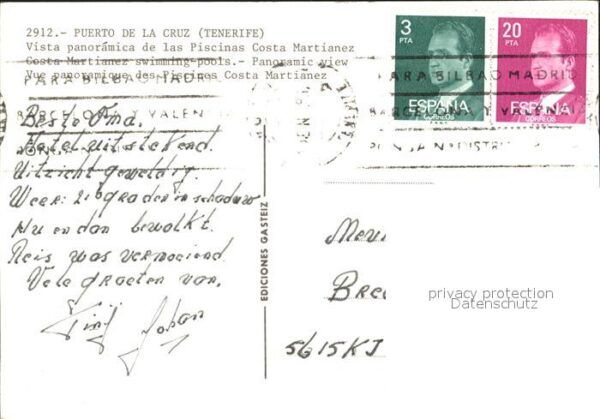 2912.- PUERTO DE LA CRUZ (TENERIFE)
Vista panorámica de las Piscinas Costa Martianez
Costa Martianez swimming-pools.- Panoramic view
Vue panoramique des Piscines Costa Martianez
PARA BILBAO MADRID
BARCELONA Y VALEN
3
PTA
ESPAÑA
CORREOS
20
PTA
ESPAÑA
CORREOS
PARA BILBAO MADRID
BARCELONA Y VALEN
Beste Oma.
Hotel uitstekend.
Uitzicht geweldig.
Weer: 26 graden in schaduw
Nu en dan bewolkt.
Reis was vermoeiend
Vele groeten van.
Johan
EDICIONES GASTEIZ
Mev
Bre
5615KJ
privacy protection
Datenschutz